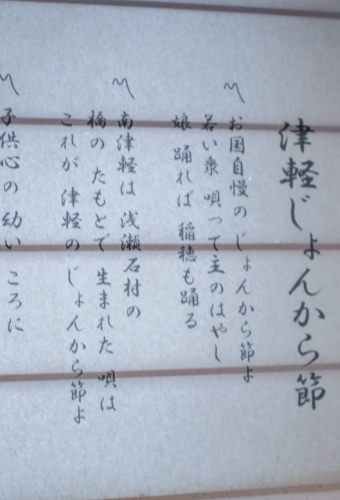 津軽じょんから節
〽お国自慢のじょんから節よ
若い衆唄って主のはやし
娘踊れば稲穂も踊る
〽南津軽は浅瀬石村の
橋のたもとで生まれた唄は
これが津軽のじょんから節よ
〽子供心の幼いころに